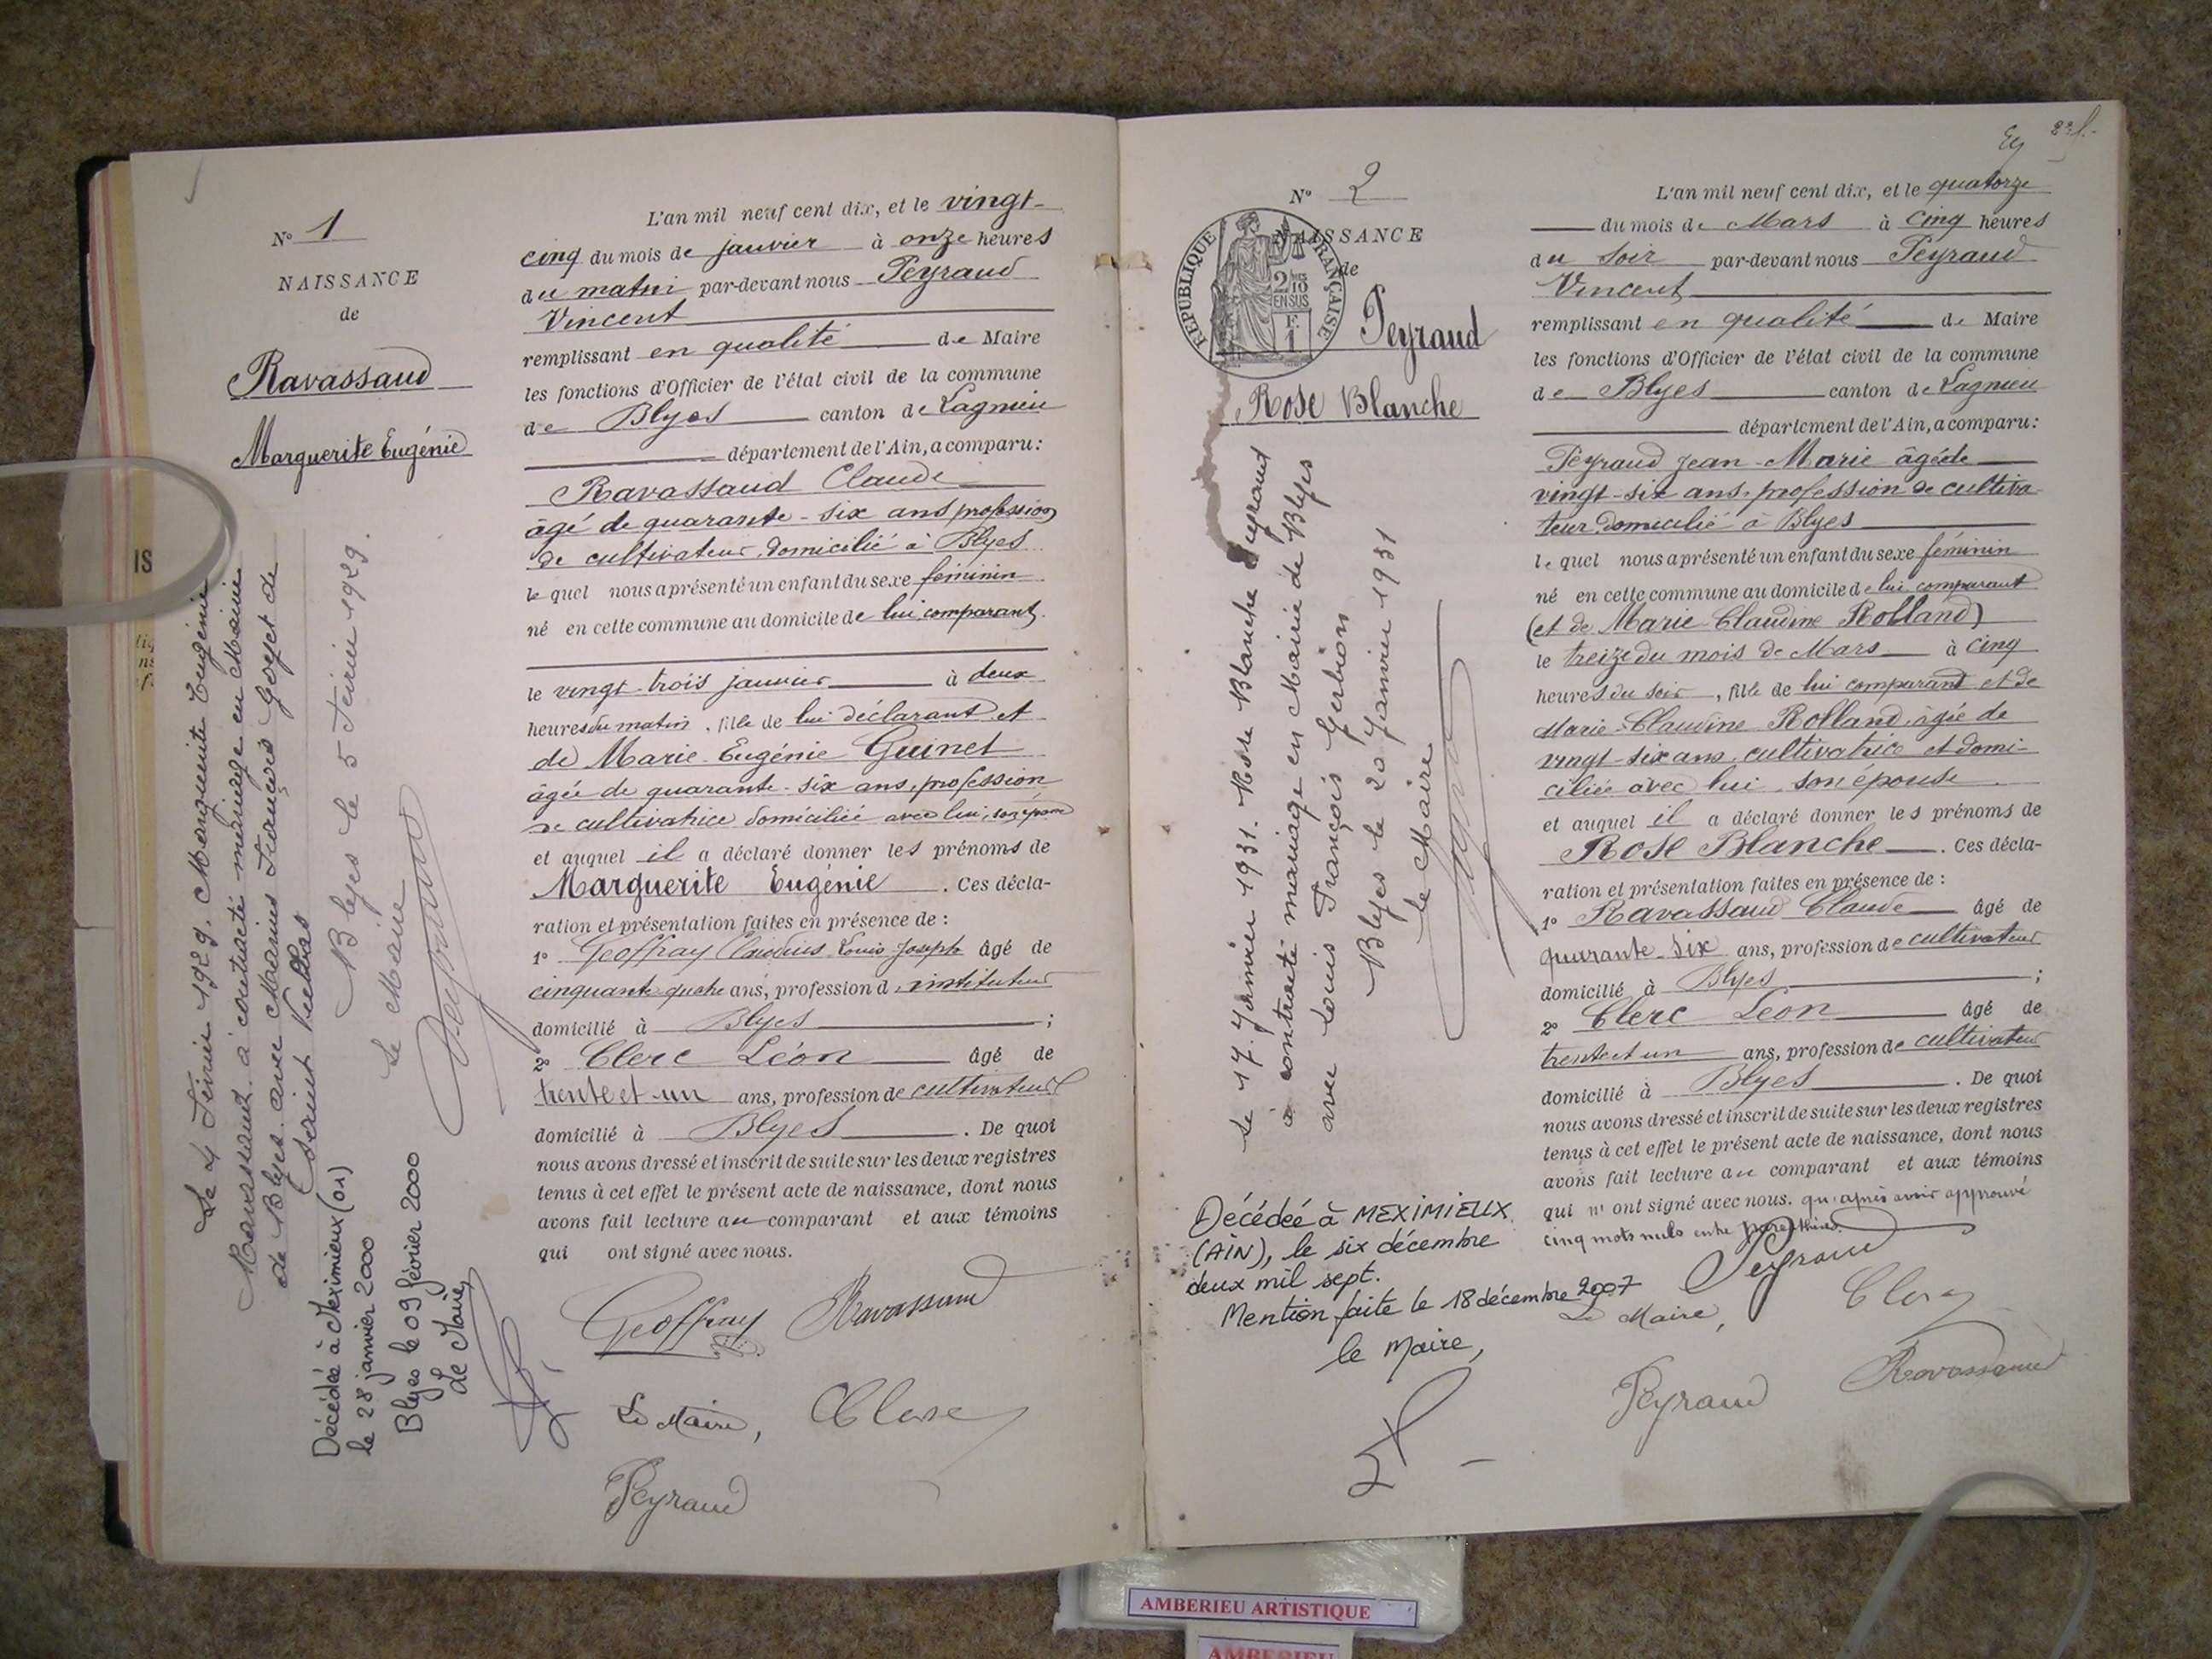 N° 1
NAISSANCE
de
Ravassaud
Marguerite Eugénie
L'an mil neuf cent dix, et le vingt-
cinq du mois de janvier à onze heures
du matin par-devant nous Peyraud
Vincent
remplissant en qualité de Maire
les fonctions d'Officier de l'état civil de la commune
de Blyes canton de Lagnieu
département de l'Ain, a comparu:
Ravassaud Claude
âgé de quarante-six ans profession
de cultivateur, domicilié à Blyes
lequel nous a présenté un enfant du sexe féminin
né en cette commune au domicile de lui, comparant,
le vingt-trois janvier à deux
heures du matin, fille de lui déclarant et
de Marie-Eugénie Guinet
âgée de quarante-six ans, profession
de cultivatrice domiciliée avec lui, son épouse
et auquel il a déclaré donner les prénoms de
Marguerite Eugénie. Ces décla-
ration et présentation faites en présence de :
1° Geoffray Claudius Louis Joseph âgé de
cinquante-quatre ans, profession d'instituteur
domicilié à Blyes ;
2° Clerc Léon âgé de
trente et un ans, profession de cultivateur
domicilié à Blyes. De quoi
nous avons dressé et inscrit de suite sur les deux registres
tenus à cet effet le présent acte de naissance, dont nous
avons fait lecture au comparant et aux témoins
qui ont signé avec nous.
Geoffray Ravassaud
Le Maire, Clerc
Peyraud
Le 4 Février 1929. Marguerite Eugénie
Ravassaud a contracté mariage en Mairie
de Blyes avec Marius François Goyet de
Blyes le 5 Février 1929.
Le Maire
Décédée à Meximieux (01)
le 28 janvier 2000
Blyes le 09 février 2000
Le Maire,
N° 2
NAISSANCE
de
RÉPUBLIQUE FRANÇAISE
2/10
EN SUS
F.
1
Peyraud
Rose Blanche
L'an mil neuf cent dix, et le quatorze
du mois de Mars à cinq heures
du soir par-devant nous Peyraud
Vincent
remplissant en qualité de Maire
les fonctions d'Officier de l'état civil de la commune
de Blyes canton de Lagnieu
département de l'Ain, a comparu:
Peyraud Jean-Marie âgé de
vingt-six ans, profession de cultiva-
teur domicilié à Blyes
lequel nous a présenté un enfant du sexe féminin
né en cette commune au domicile de lui comparant
(et de Marie Claudine Rolland)
le treize du mois de Mars à cinq
heures du soir, fille de lui comparant et de
Marie-Claudine Rolland, âgée de
vingt-six ans, cultivatrice et domi-
ciliée avec lui, son épouse.
et auquel il a déclaré donner les prénoms de
Rose Blanche. Ces décla-
ration et présentation faites en présence de :
1° Ravassaud Claude âgé de
quarante-six ans, profession de cultivateur
domicilié à Blyes ;
2° Clerc Léon âgé de
trente et un ans, profession de cultivateur
domicilié à Blyes. De quoi
nous avons dressé et inscrit de suite sur les deux registres
tenus à cet effet le présent acte de naissance, dont nous
avons fait lecture au comparant et aux témoins
qui n'ont signé avec nous. qu'après avoir approuvé
cinq mots nuls entre parenthèses.
Peyraud
Le Maire, Clerc
Peyraud Ravassaud
Le 17 Janvier 1931. Rose Blanche Peyraud
a contracté mariage en Mairie de Blyes
avec Louis François Gerbion
Blyes le 20 Janvier 1931
Le Maire
Décédée à MEXIMIEUX
(AIN), le six décembre
deux mil sept.
Mention faite le 18 décembre 2007
le Maire,
AMBERIEU ARTISTIQUE
AMBERIEU